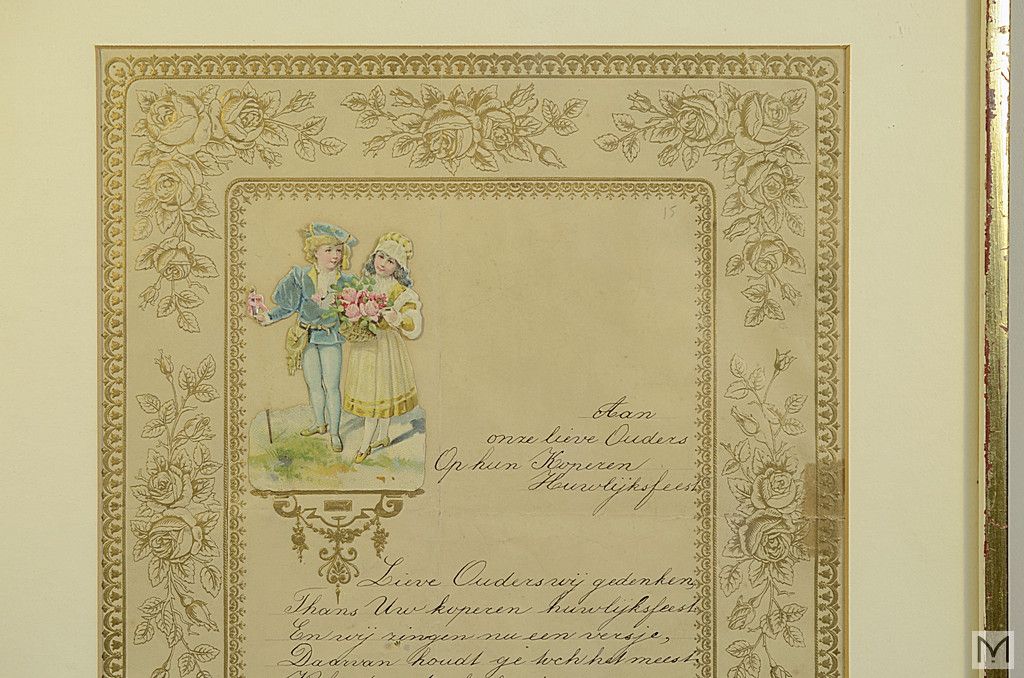 15
Aan
onze lieve Ouders
Op hun Koperen
Huwlijksfeest
Lieve Ouders wij gedenken
Thans Uw koperen huwlijksfeest
En wij zingen nu een versje,
Daarvan houdt ge toch het meest.
M